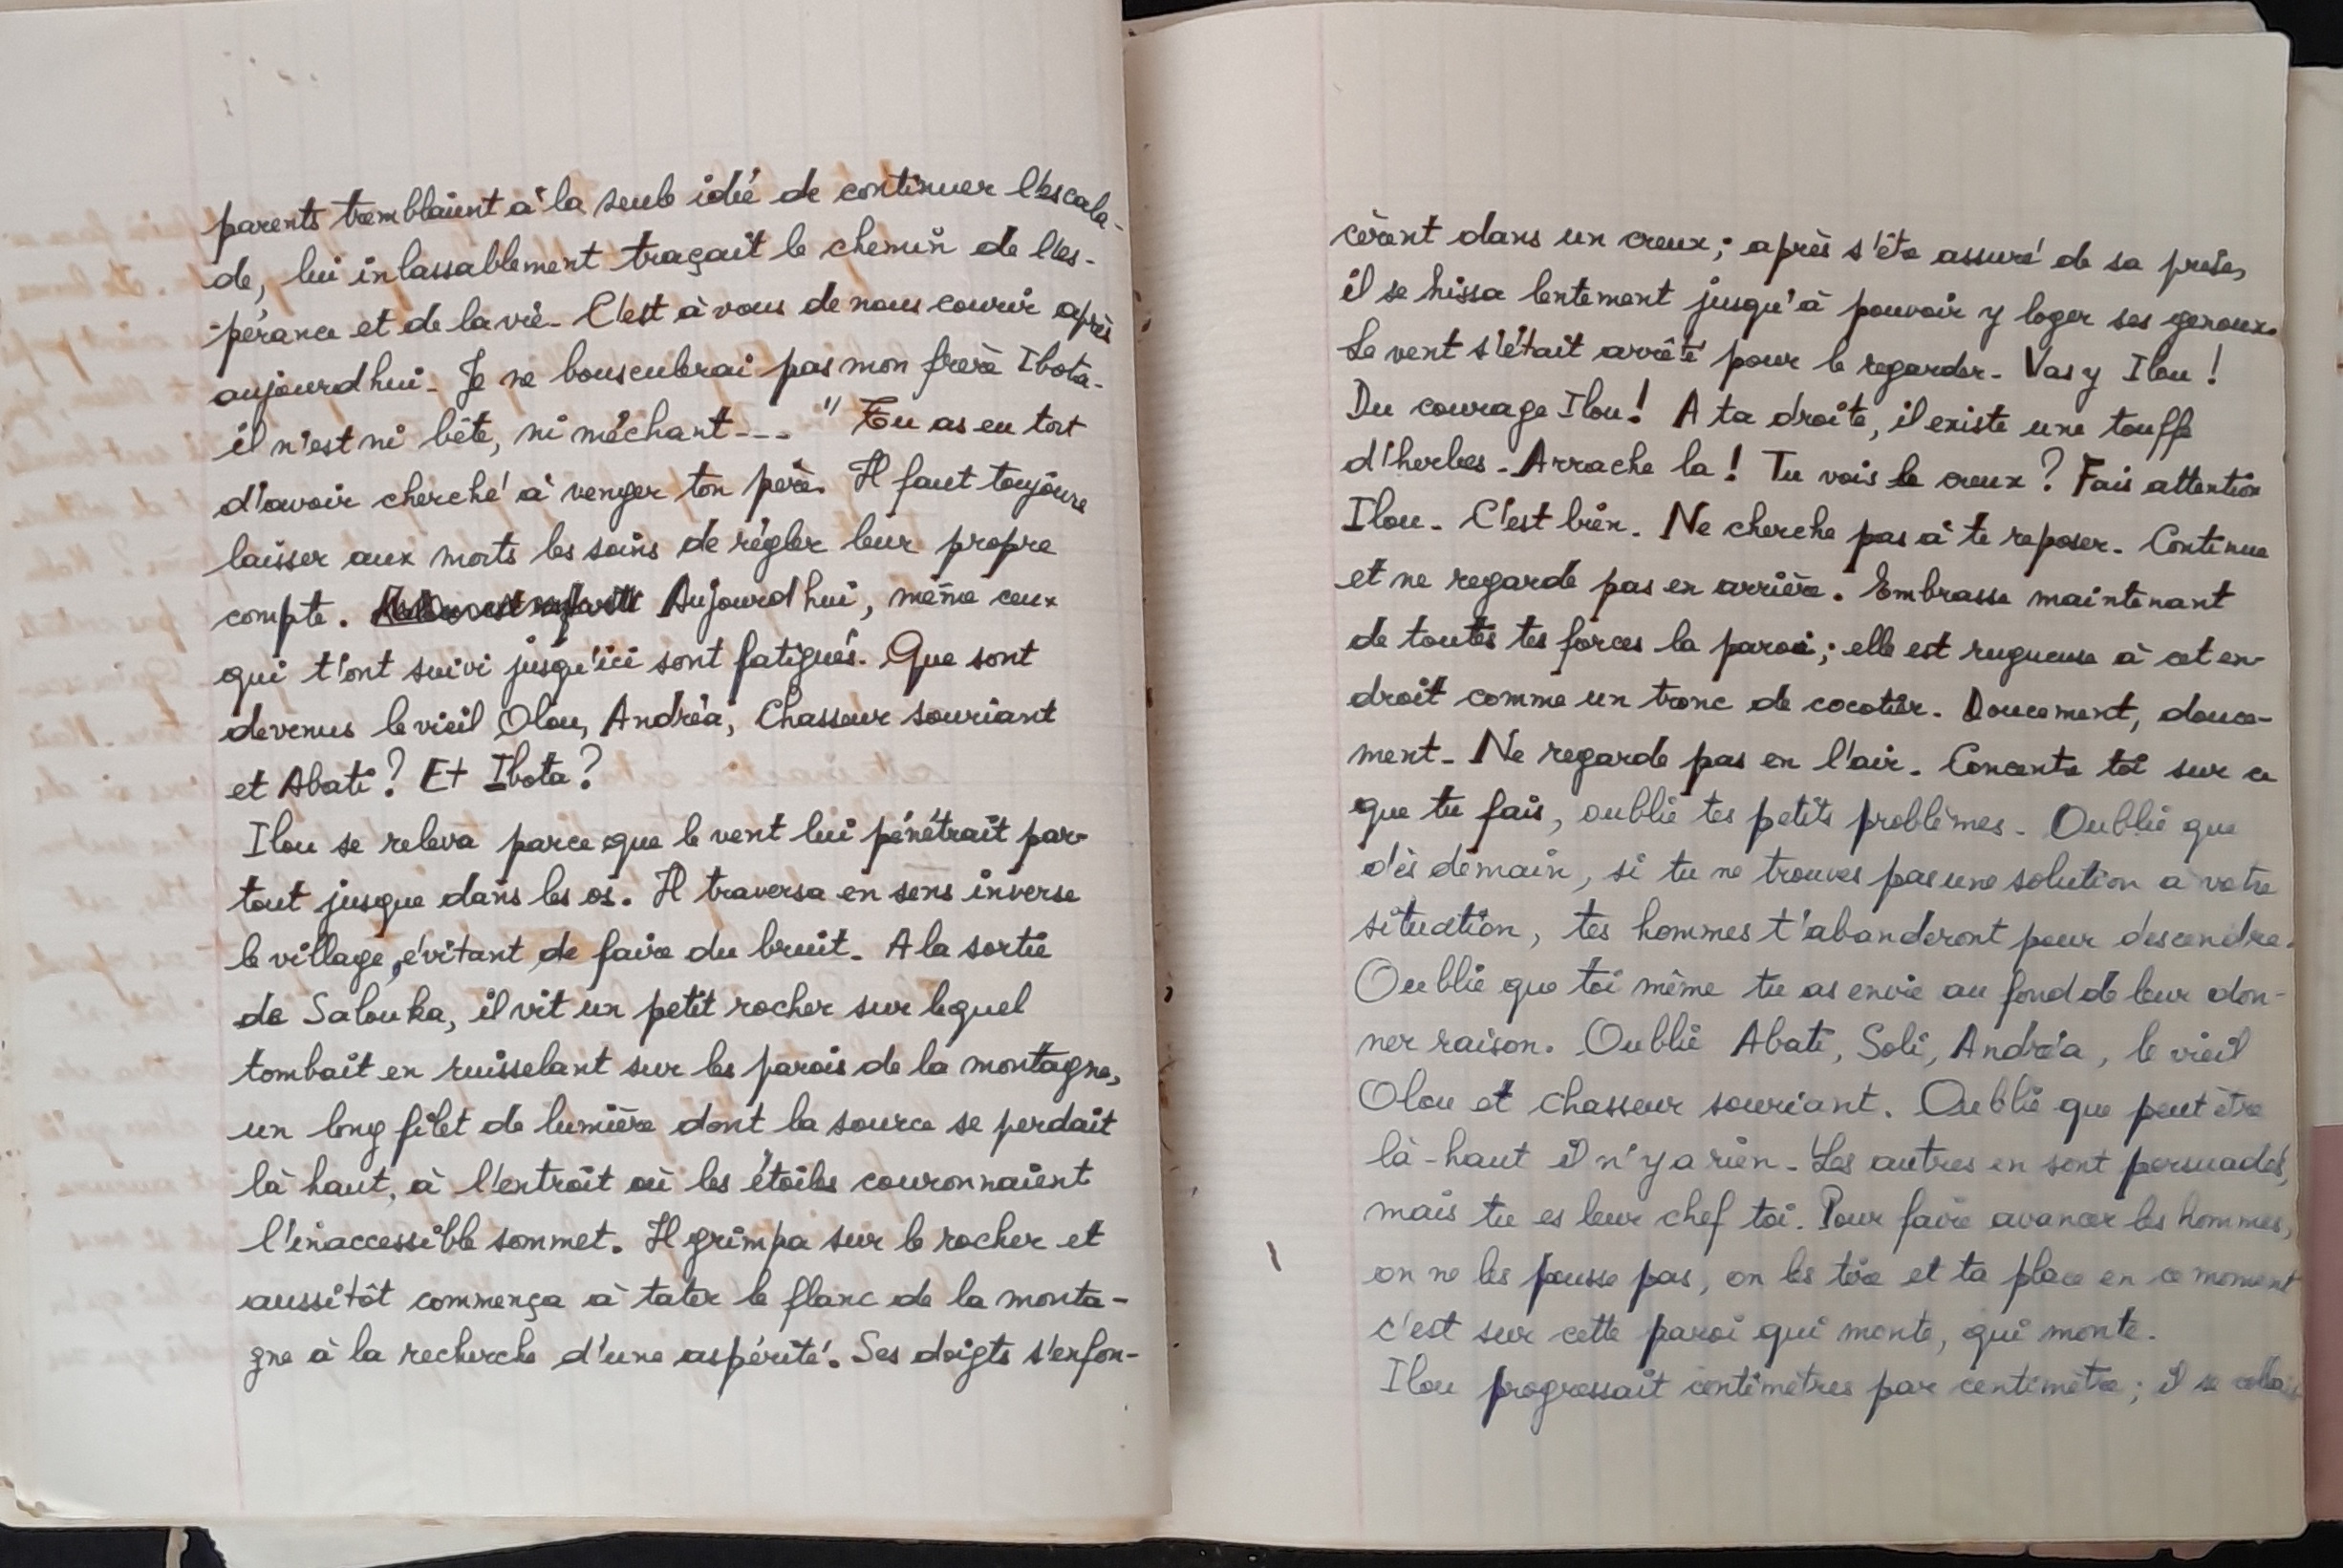 parents tremblaient à la seule idée de continuer l'escala-
de, lui inlassablement traçait le chemin de l'es-
pérance et de la vie. C'est à vous de nous courir après
aujourd'hui. Je ne bousculerai pas mon frère Ibota.
il n'est ni bête, ni méchant --- " Tu as eu tort
d'avoir cherché à venger ton père. Il faut toujours
laisser aux morts les soins de régler leur propre
compte. Aujourd'hui, même ceux
qui t'ont suivi jusqu'ici sont fatigués. Que sont
devenus le vieil Olou, Andréa, Chasseur souriant
et Abati? Et Ibota?
Ilou se releva parce que le vent lui pénétrait par-
tout jusque dans les os. Il traversa en sens inverse
le village, évitant de faire du bruit. A la sortie
de Salouka, il vit un petit rocher sur lequel
tombait en ruisselant sur les parois de la montagne,
un long filet de lumière dont la source se perdait
là haut, à l'entroit où les étoiles couronnaient
l'inaccessible sommet. Il grimpa sur le rocher et
aussitôt commença à tater le flanc de la monta-
gne à la recherche d'une aspérité. Ses doigts s'enfon-
cèrent dans un creux; après s'être assuré de sa prise,
il se hissa lentement jusqu'à pouvoir y loger ses genoux.
Le vent s'était arrêté pour le regarder. Vas y Ilou!
Du courage Ilou! A ta droite, il existe une touffe
d'herbes. Arrache la! Tu vois le creux? Fais attention
Ilou. C'est bien. Ne cherche pas à te reposer. Continue
et ne regarde pas en arrière. Embrasse maintenant
de toutes tes forces la paroi; elle est rugueuse à cet en-
droit comme un tronc de cocotier. Doucement, douce-
ment. Ne regarde pas en l'air. Concentre toi sur ce
que tu fais, oublie tes petits problèmes. Oublie que
dès demain, si tu ne trouves pas une solution à votre
situation, tes hommes t'abanderont pour descendre.
Oublie que toi même tu as envie au fond de leur don-
ner raison. Oublie Abati, Soli, Andréa, le vieil
Olou et chasseur souriant. Oublie que peut être
là-haut il n'y a rien. Les autres en sont persuadés,
mais tu es leur chef toi. Pour faire avancer les hommes,
on ne les pousse pas, on les tire et ta place en ce moment
c'est sur cette paroi qui monte, qui monte.
Ilou progressait centimètres par centimètre; il se collait